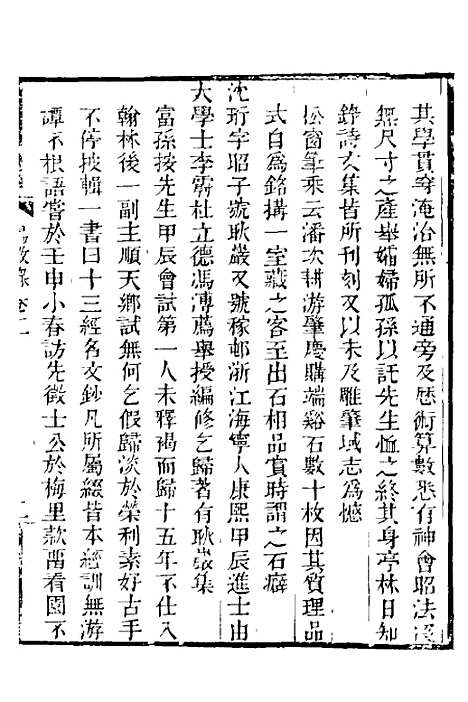 其學貫穿淹洽無所不通旁及歷術算數悉有神會昭法沒
無尺寸之產舉孀婦孤孫以託先生恤之終其身亭林日知
錄詩文集皆所刊刻又以未及雕肇域志爲憾
松窗筆乘云潘次耕游肇慶購端谿石數十枚因其質理品
式自爲銘搆一室藏之客至出石相品賞時謂之石癖
沈珩字昭子號耿巖又號稼邨浙江海寧人康熙甲辰進士由
大學士李霨杜立德馮溥薦舉授編修乞歸著有耿巖集
富孫按先生甲辰會試第一人未釋褐而歸十五年不仕入
翰林後一副主順天鄉試無何乞假歸淡於榮利素好古手
不停披輯一書曰十三經名文鈔凡所屬綴皆本經訓無游
譚不根語嘗於壬申小春訪先徵士公於梅里款留看園不